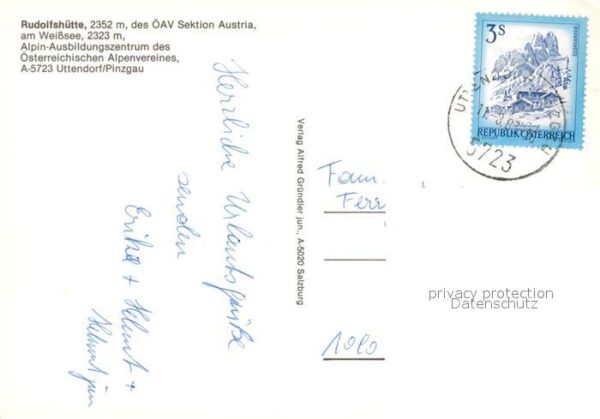 Rudolfshütte, 2352 m, des ÖAV Sektion Austria,
am Weißsee, 2323 m,
Alpin-Ausbildungszentrum des
Österreichischen Alpenvereines,
A-5723 Uttendorf/Pinzgau
Herzliche Urlaubsgrüße
senden
Erika + Helmut +
Helmut jun
Verlag Alfred Gründler jun., A-5020 Salzburg
3S
REPUBLIK ÖSTERREICH
5723
Fam.
Ferr
1090
privacy protection
Datenschutz